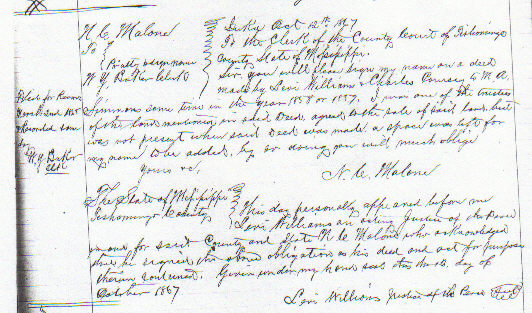 N. C. Malone
To
W. Y. Baker Clerk
Iuka Oct 12th 1867
To the Clerk of the County Court of Tishomingo
County State of Mississippi
Sir you will please sign my name on a deed
made by Levi Williams & Charles to M. A.
Simmons some time in the year 1858 or 1857. I was one of the trustees
of the land mentioned in said Deed, agreed to the sale of said land, but
was not present when said Deed was made a space was left for
my name to be added, by so doing you will much oblige
Yours &c,
N. C. Malone
Filed for Record
Recorded same
day
W. Y. Baker
Clk
The State of Mississippi
Tishomingo County
This day personally appeared before me
Levi Williams an acting Justice of the Peace
in and for said County and State N C Malone, who acknowledged
that he signed the above obligation as his deed and act for purposes
therein contained. Given under my hand and seal this the day of
October 1867
Levi Williams Justice of the Peace Seal